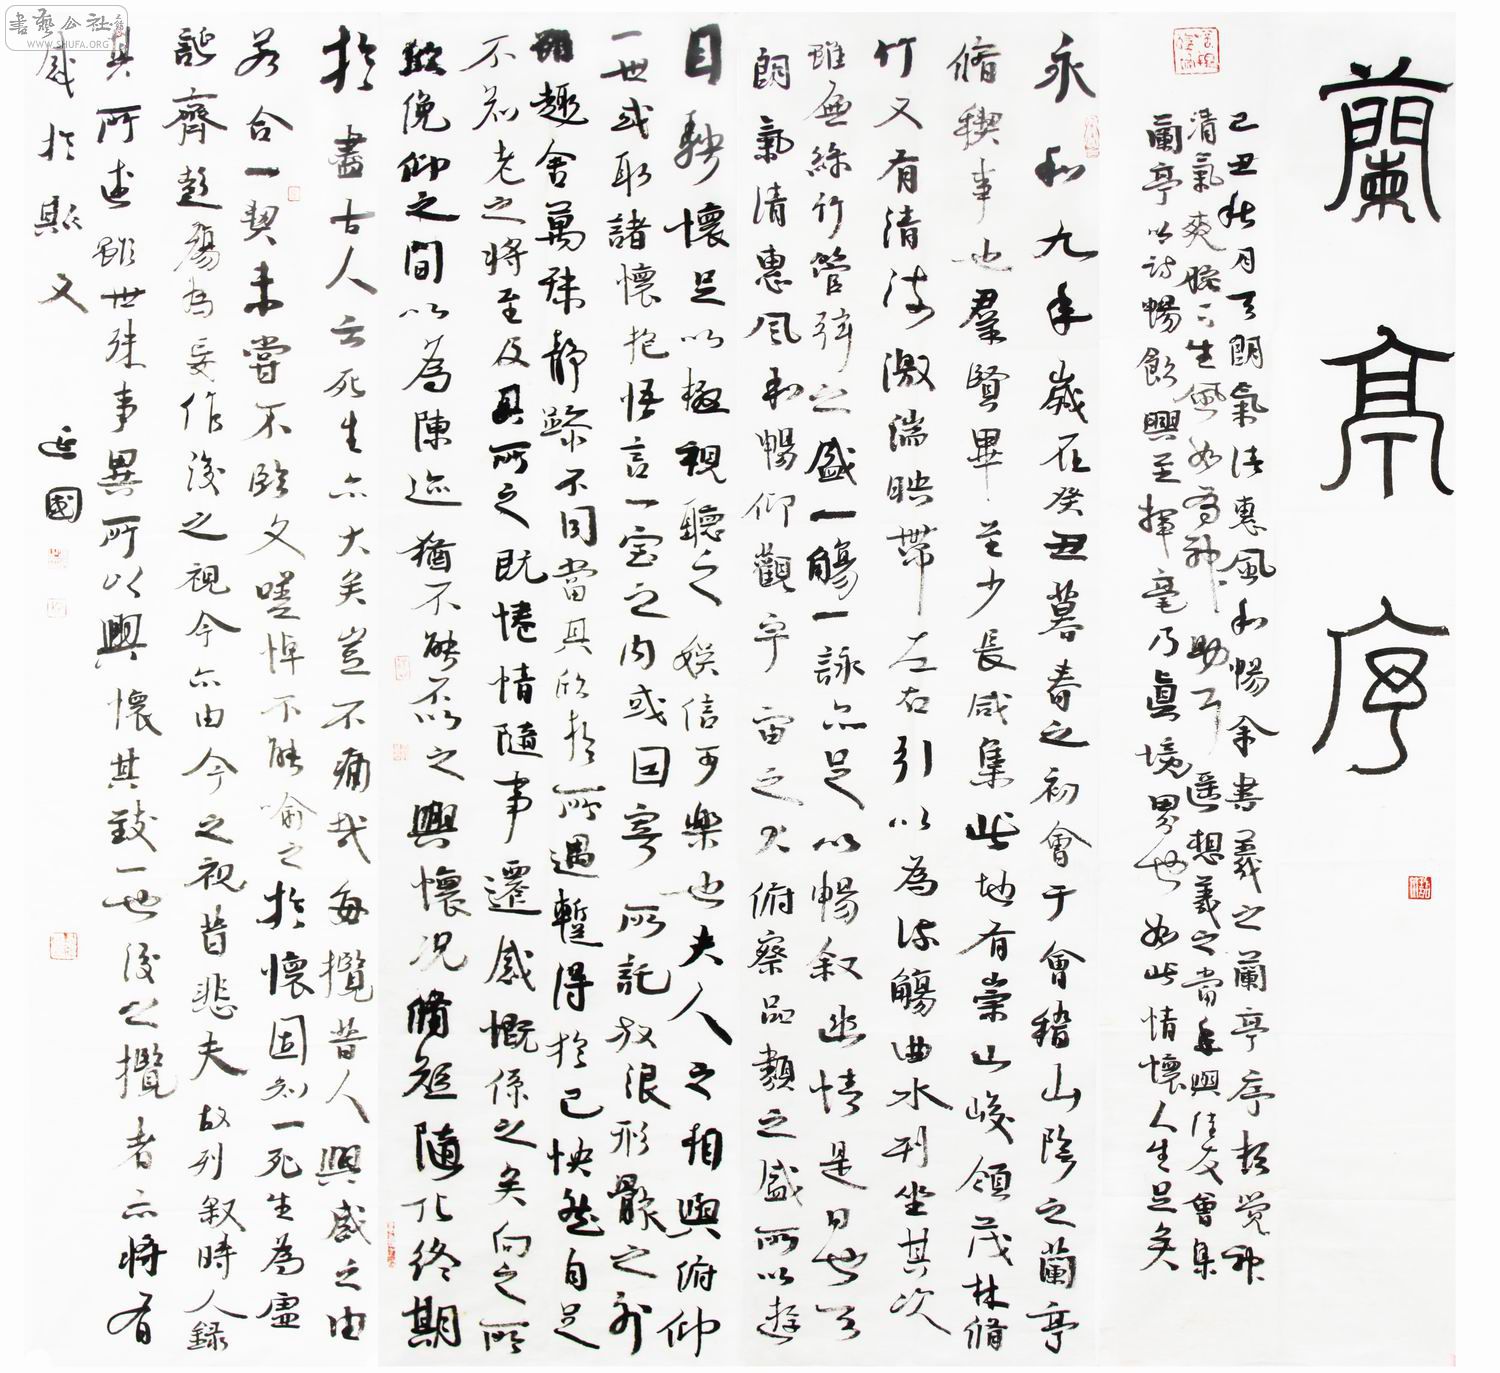 書藝公社
WWW.SHUFA.ORG
蘭亭序
己丑秋月天朗氣清惠風和暢余書羲之蘭亭序頓觉神
清氣爽腕下生風如有神助耳遥想羲之當年興佳友會集
蘭亭以詩暢飲興至揮毫乃真境界也如此情懷人生足矣
永和九年歲在癸丑暮春之初會于會稽山陰之蘭亭
脩稧事也羣賢畢至少長咸集此地有崇山峻領茂林脩
竹又有清流激湍映帶左右引以為流觴曲水列坐其次
雖無絲竹管弦之盛一觴一詠亦足以暢叙幽情是日也天
朗氣清惠風和暢仰觀宇宙之大俯察品類之盛所以遊
目騁懷足以極視聽之娛信可樂也夫人之相與俯仰
一世或取諸懷抱悟言一室之內或因寄所託放浪形骸之外
雖趣舍萬殊靜躁不同當其欣於所遇暫得於己怏然自足
不知老之將至及其所之既惓情隨事遷感慨係之矣向之所
欣俛仰之間以為陳迹猶不能不以之興懷況脩短隨化終期
於盡古人云死生亦大矣豈不痛哉每攬昔人興感之由
若合一契未嘗不臨文嗟悼不能喻之於懷固知一死生為虛
誕齊彭殤為妄作後之視今亦由今之視昔悲夫故列叙時人錄
其所述雖世殊事異所以興懷其致一也後之攬者亦將有
感於斯文
延國